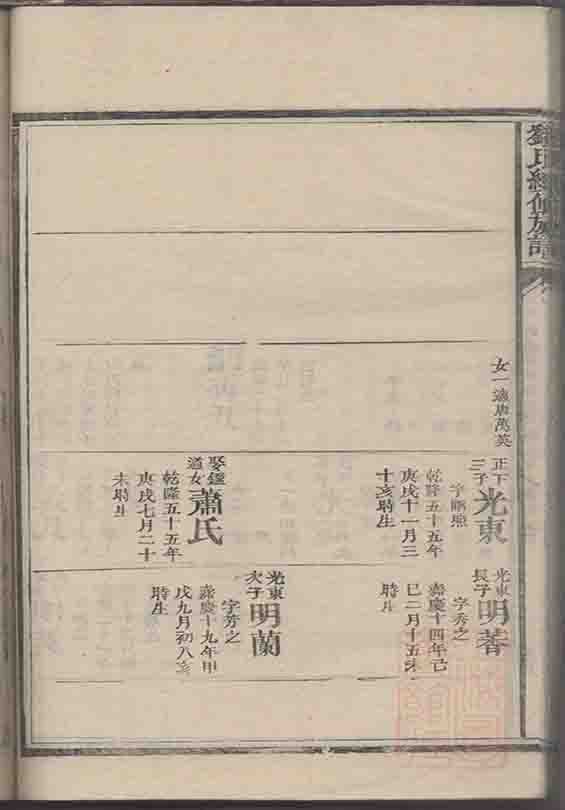 劉氏續修族譜
女一適唐萬英
正下
三子
光東
字曜照
乾隆五十五年
庚戌十一月三
十亥時生
娶鍾
道女
蕭氏
乾隆五十五年
庚戌七月二十
未時生
光東
長子
字秀之
嘉慶十四年己
巳二月十五未
時生
光東
次子
明蘭
字芳之
嘉慶十九年甲
戌九月初八亥
時生